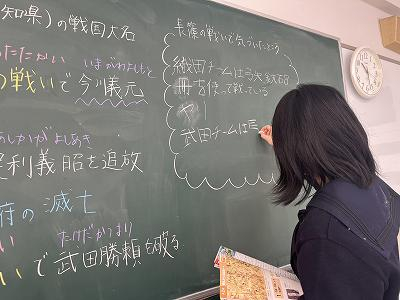 知県)の戦国大名
たたかい いまがわよしもと
の戦いで今川義元
あしかがよしあき
利義昭を追放
府の滅亡
い たけだかつより
いで武田勝頼を破る
長篠の戦いで気づいたところ
織田チームは
を使って戦っている
武田チームは